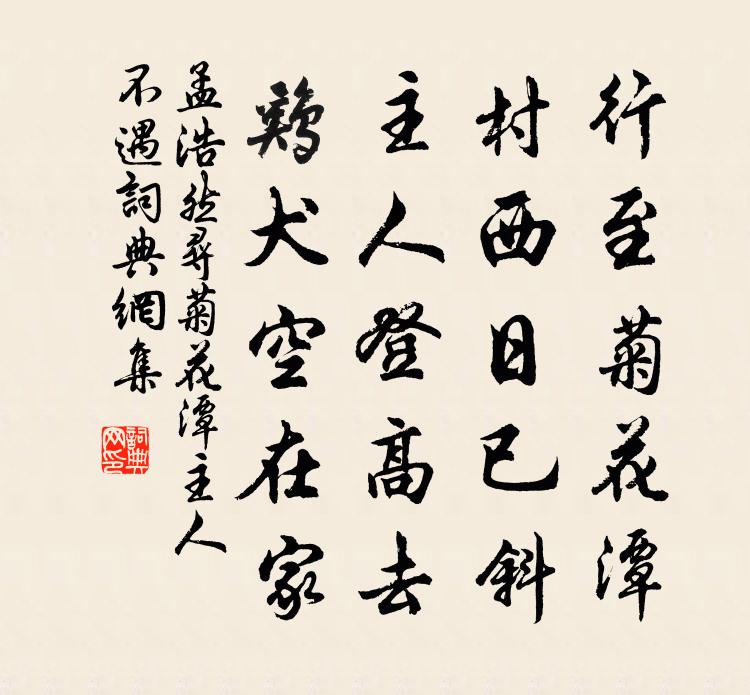 行至菊花潭
村西日已斜
主人登高去
鷄犬空在家
孟浩然尋菊花潭主人
不遇詞典網集
詞典
网印